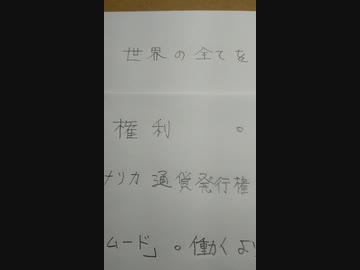 世界の全てを
権利 。
メリカ通貨発行権
ムード」。働くより